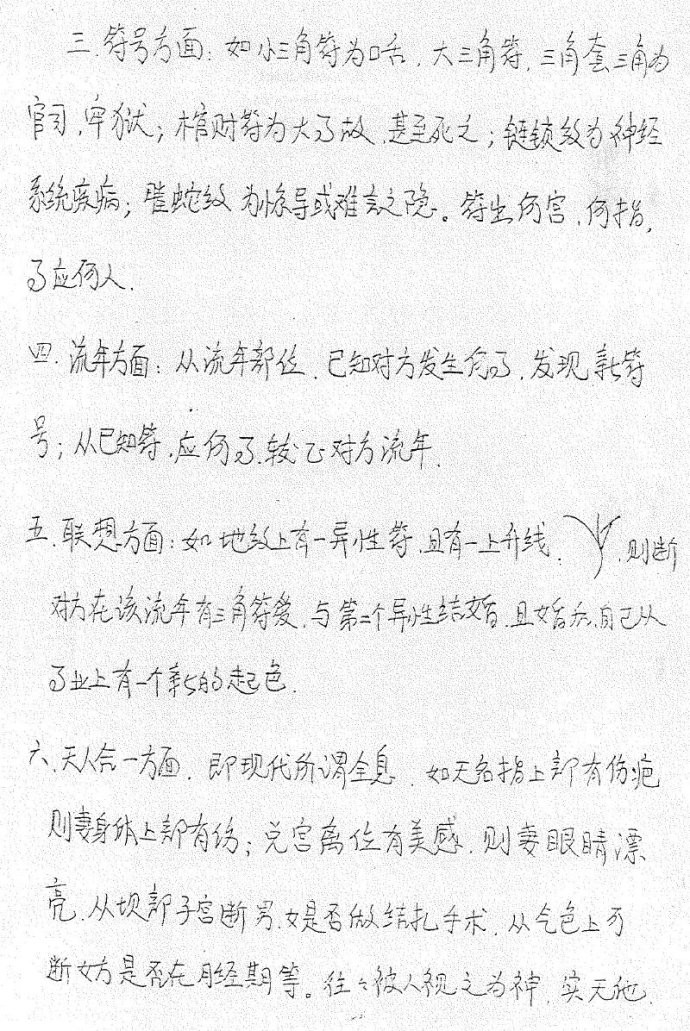 三.符号方面:如小三角符为口舌,大三角符,三角套三角为
官司,牢狱;棺财符为大事故,甚至死亡;链锁纹为神经
系统疾病;蛇纹为误导或难言之隐。符出何宫,何指,
事应何人.
四.流年方面:从流年部位,已知对方发生何事,发现新符
号;从已知符,应何事,较正对方流年.
五.联想方面:如地纹上有一异性符,且有一上升线,则断
对方在该流年有三角符爱,与第二个异性结婚,且婚后,自己从
事业上有一个新的起色.
六、天人合一方面,即现代所谓全息,如无名指上部有伤疤
则妻身体上部有伤;兑宫离位有美感,则妻眼睛漂
亮,从坝部子宫断男、女是否做结扎手术,从气色上可
断女方是否在月经期等。往々被人视之为神,实无他,